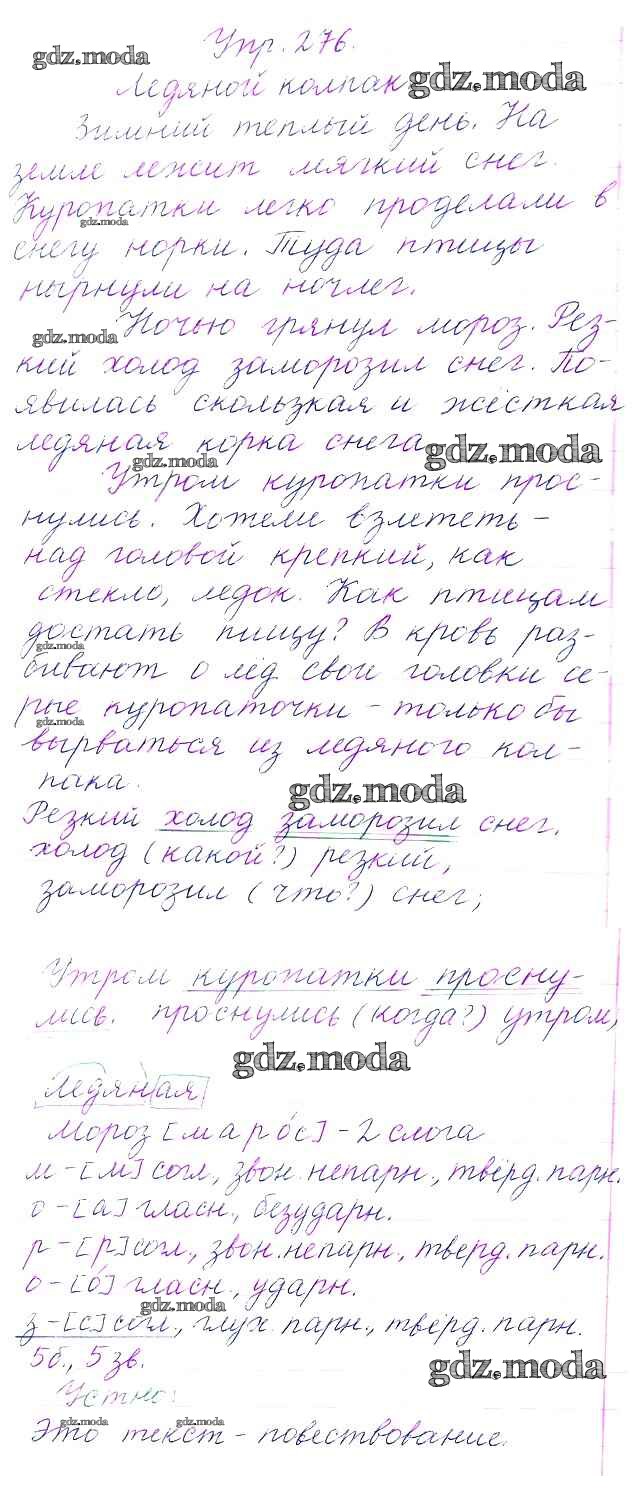 Упр. 276.
gdz.moda
Ледяной колпак
gdz.moda
Зимний теплый день. На
земле лежит мягкий снег.
Куропатки легко проделали в
gdz.moda
снегу норки. Туда птицы
нырнули на ночлег.
Ночью грянул мороз. Рез-
gdz.moda
кий холод заморозил снег. По-
явилась скользкая и жёсткая
ледяная корка снега
gdz.moda
gdz.moda
Утром куропатки прос-
нулись. Хотели взлететь –
над головой крепкий, как
стекло, ледок. Как птицам
достать пищу? В кровь раз-
gdz.moda
бивают о лёд свои головки се-
рые куропаточки – только бы
gdz.moda
вырваться из ледяного кол-
пака.
gdz.moda
Резкий холод заморозил снег.
холод (какой?) резкий,
заморозил (что?) снег;
Утром куропатки просну-
лись. проснулись (когда?) утром,
gdz.moda
Ледяная
Мороз [марóс] – 2 слога
м – [м] согл., звон. непарн., твёрд. парн.
о – [а] гласн., безударн.
р – [р] согл., звон. непарн., тверд. парн.
о – [ó] гласн., ударн.
gdz.moda
з – [с] согл., глух. парн., твёрд. парн.
5б., 5 зв.
gdz.moda
Устно:
gdz.moda
gdz.moda
Это текст – повествование.